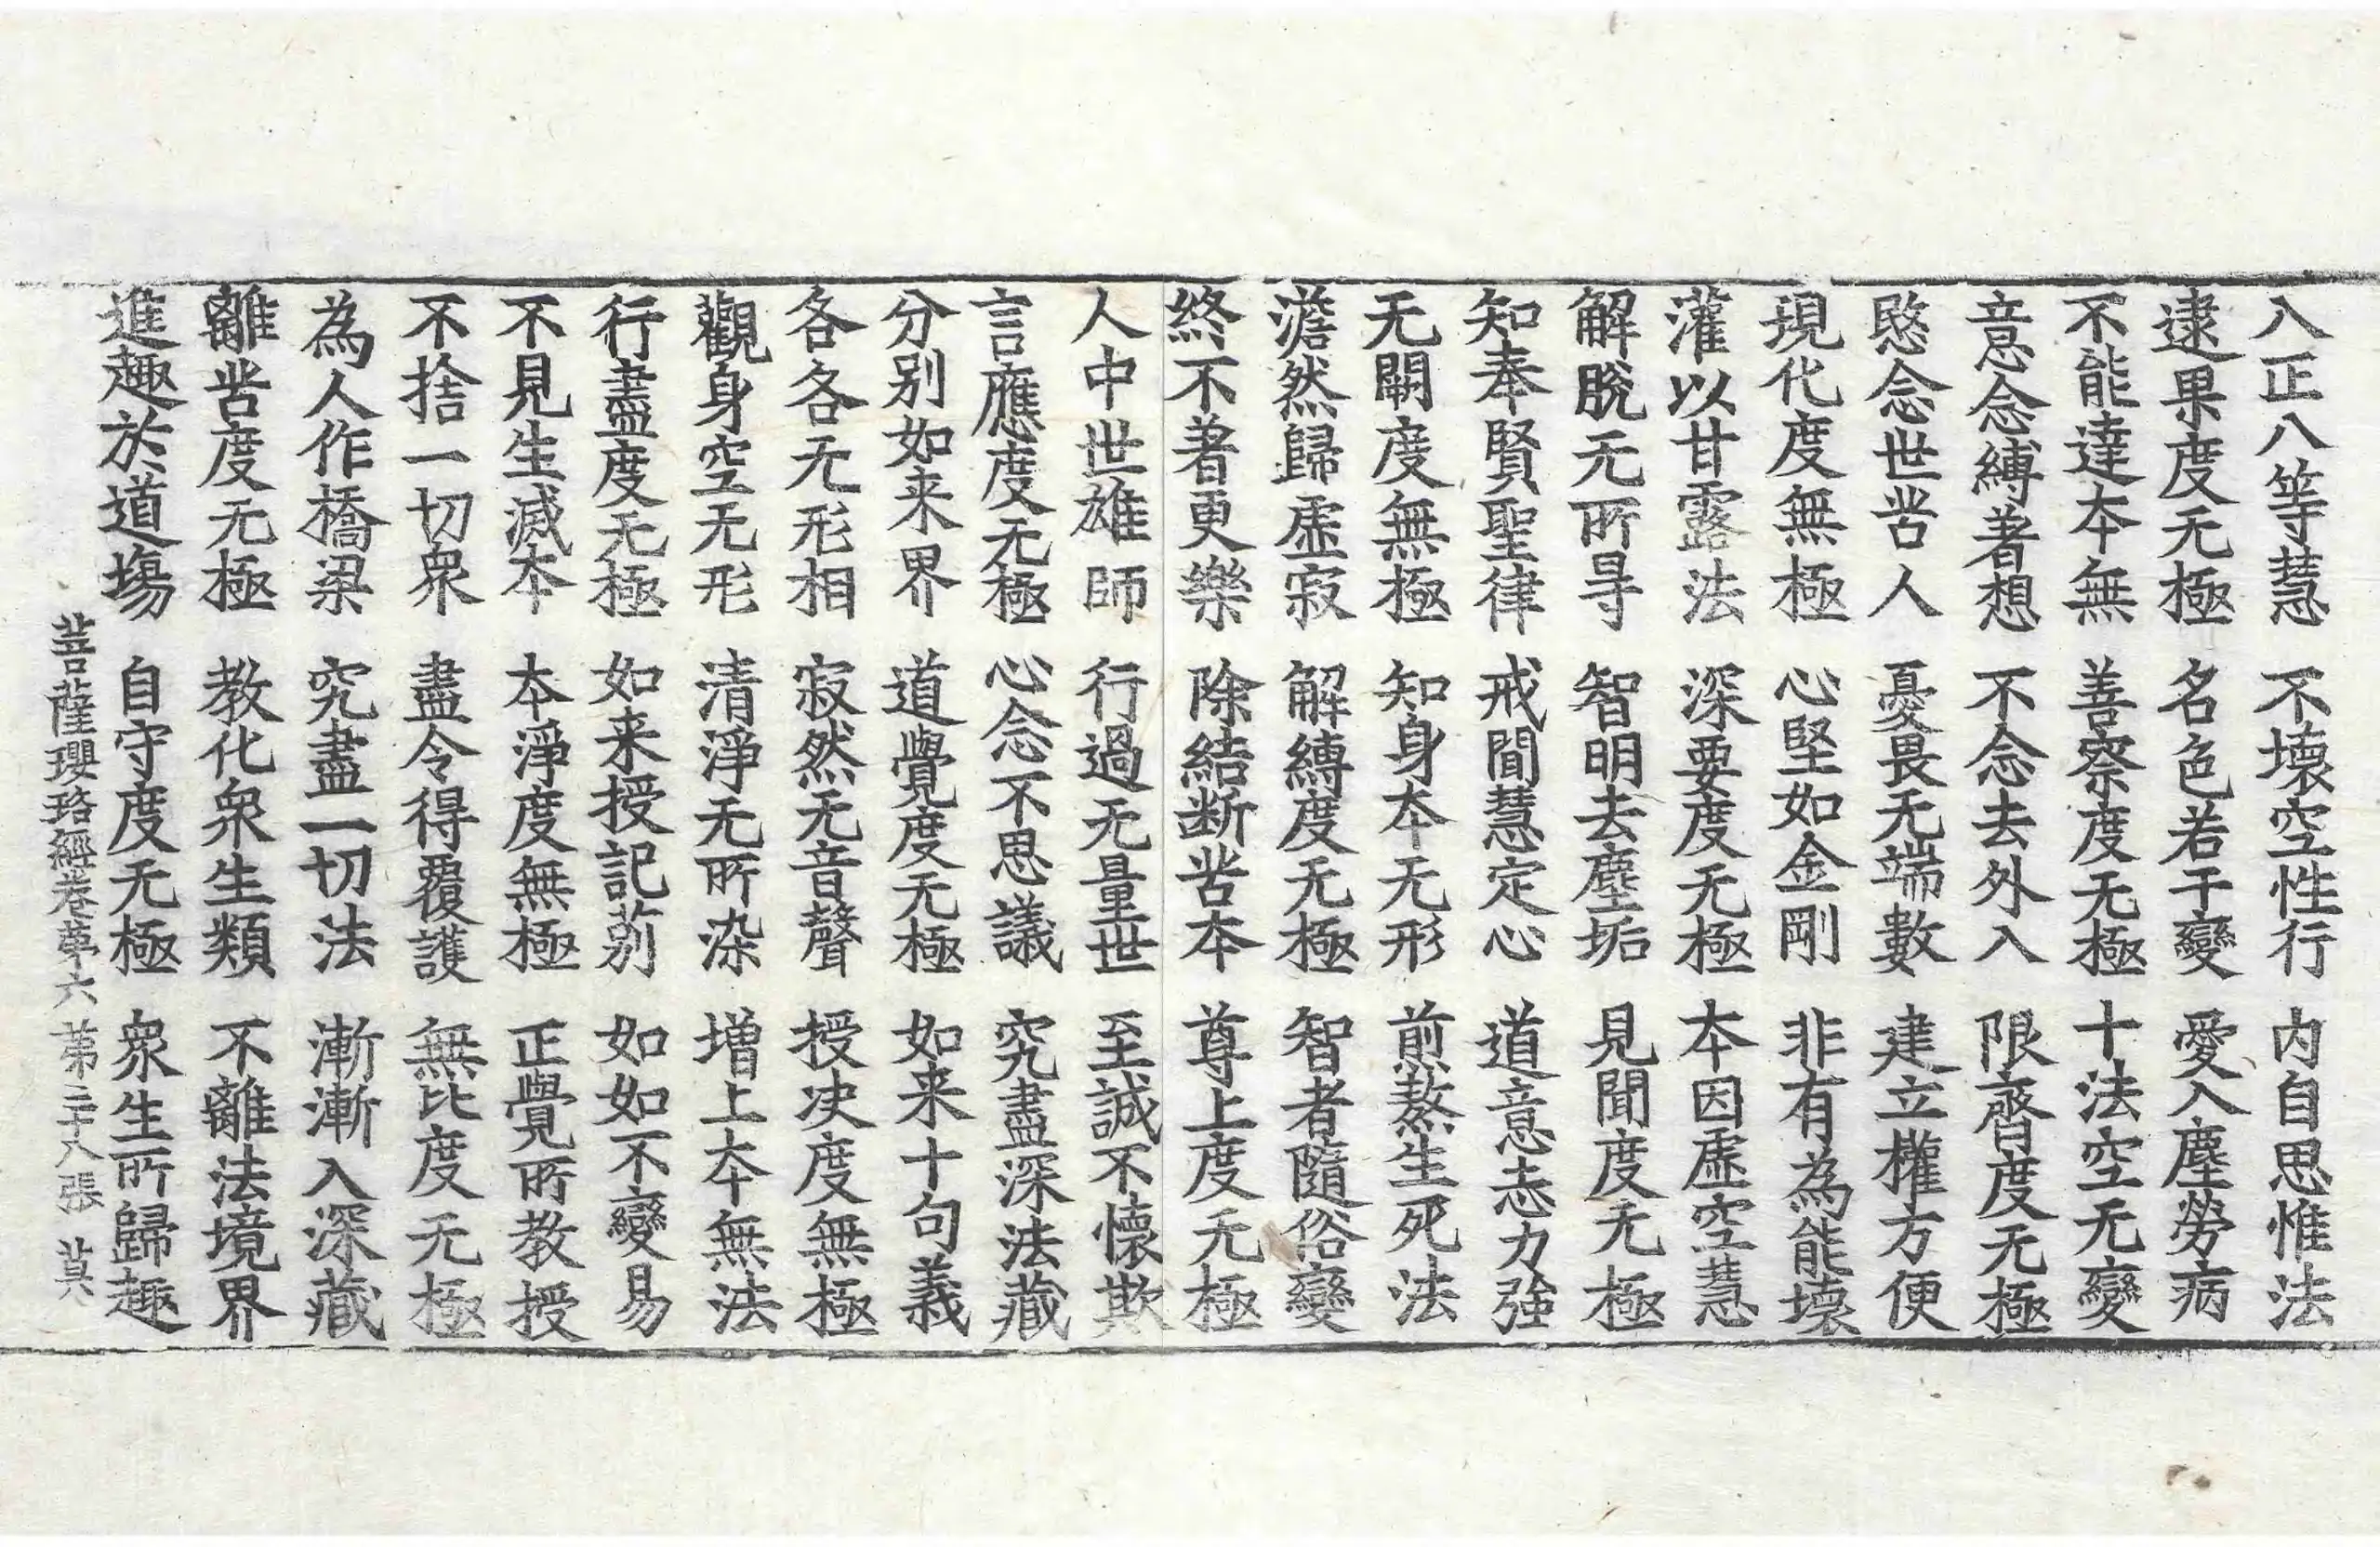 八正八等慧 不壞空性行 内自思惟法
逮果度无極 名色若干變 愛入塵勞病
不能達本無 善察度无極 十法空无變
意念縛著想 不念去外入 限齊度无極
愍念世苦人 憂畏无端數 建立權方便
現化度無極 心堅如金剛 非有為能壞
灌以甘露法 深要度无極 本因虛空慧
解脫无所㝵 智明去塵垢 見聞度无極
知奉賢聖律 戒聞慧定心 道意志力強
无關度無極 知身本无形 煎熬生死法
澹然歸虛寂 解縛度无極 智者隨俗變
終不著更樂 除結断苦本 尊上度无極
人中世雄師 行過无量世 至誠不懷欺
言應度无極 心念不思議 究盡深法藏
分别如来界 道覺度无極 如来十句義
各各无形相 寂然无音聲 授决度無極
觀身空无形 清淨无所染 增上本無法
行盡度无極 如来授記莂 如如不變易
不見生滅本 本淨度無極 正覺所教授
不捨一切衆 盡令得覆護 無比度无極
為人作橋梁 究盡一切法 漸漸入深藏
離苦度无極 教化衆生類 不離法境界
進趣於道場 自守度无極 衆生所歸趣
菩薩瓔珞經卷第六 第二十八張 莫